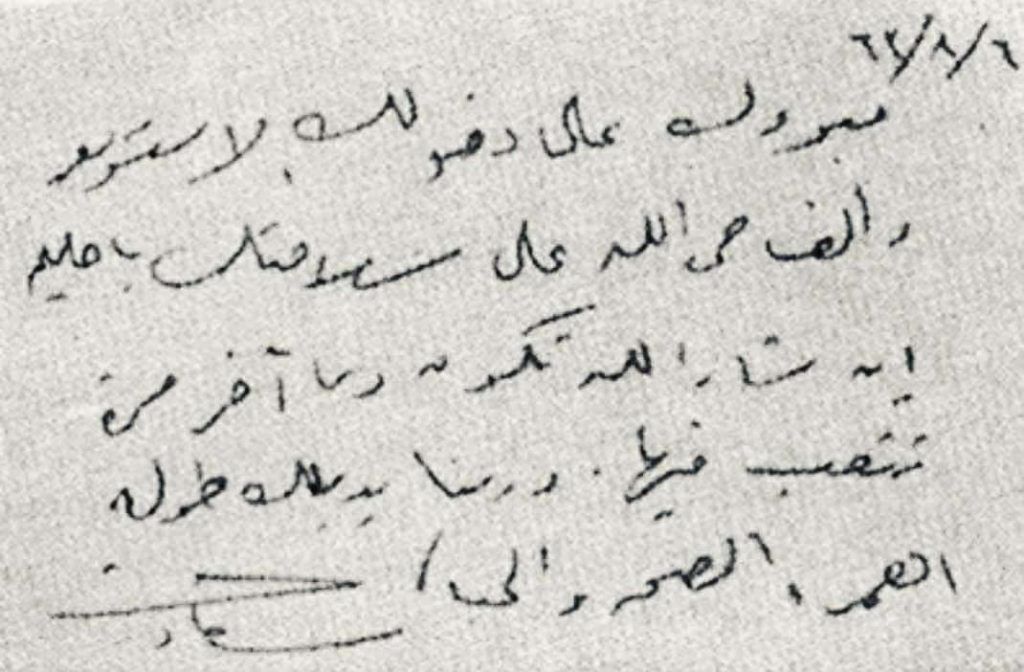 ٦٢/٨/٦
مبروك على دخولك الاستوديو
والف حمدالله على سلامتك ياحليم
ان شاء الله تكون دى آخر مرة
تتعب فيها. وربنا يديلك طولة
العمر والصحه وال
سعاد